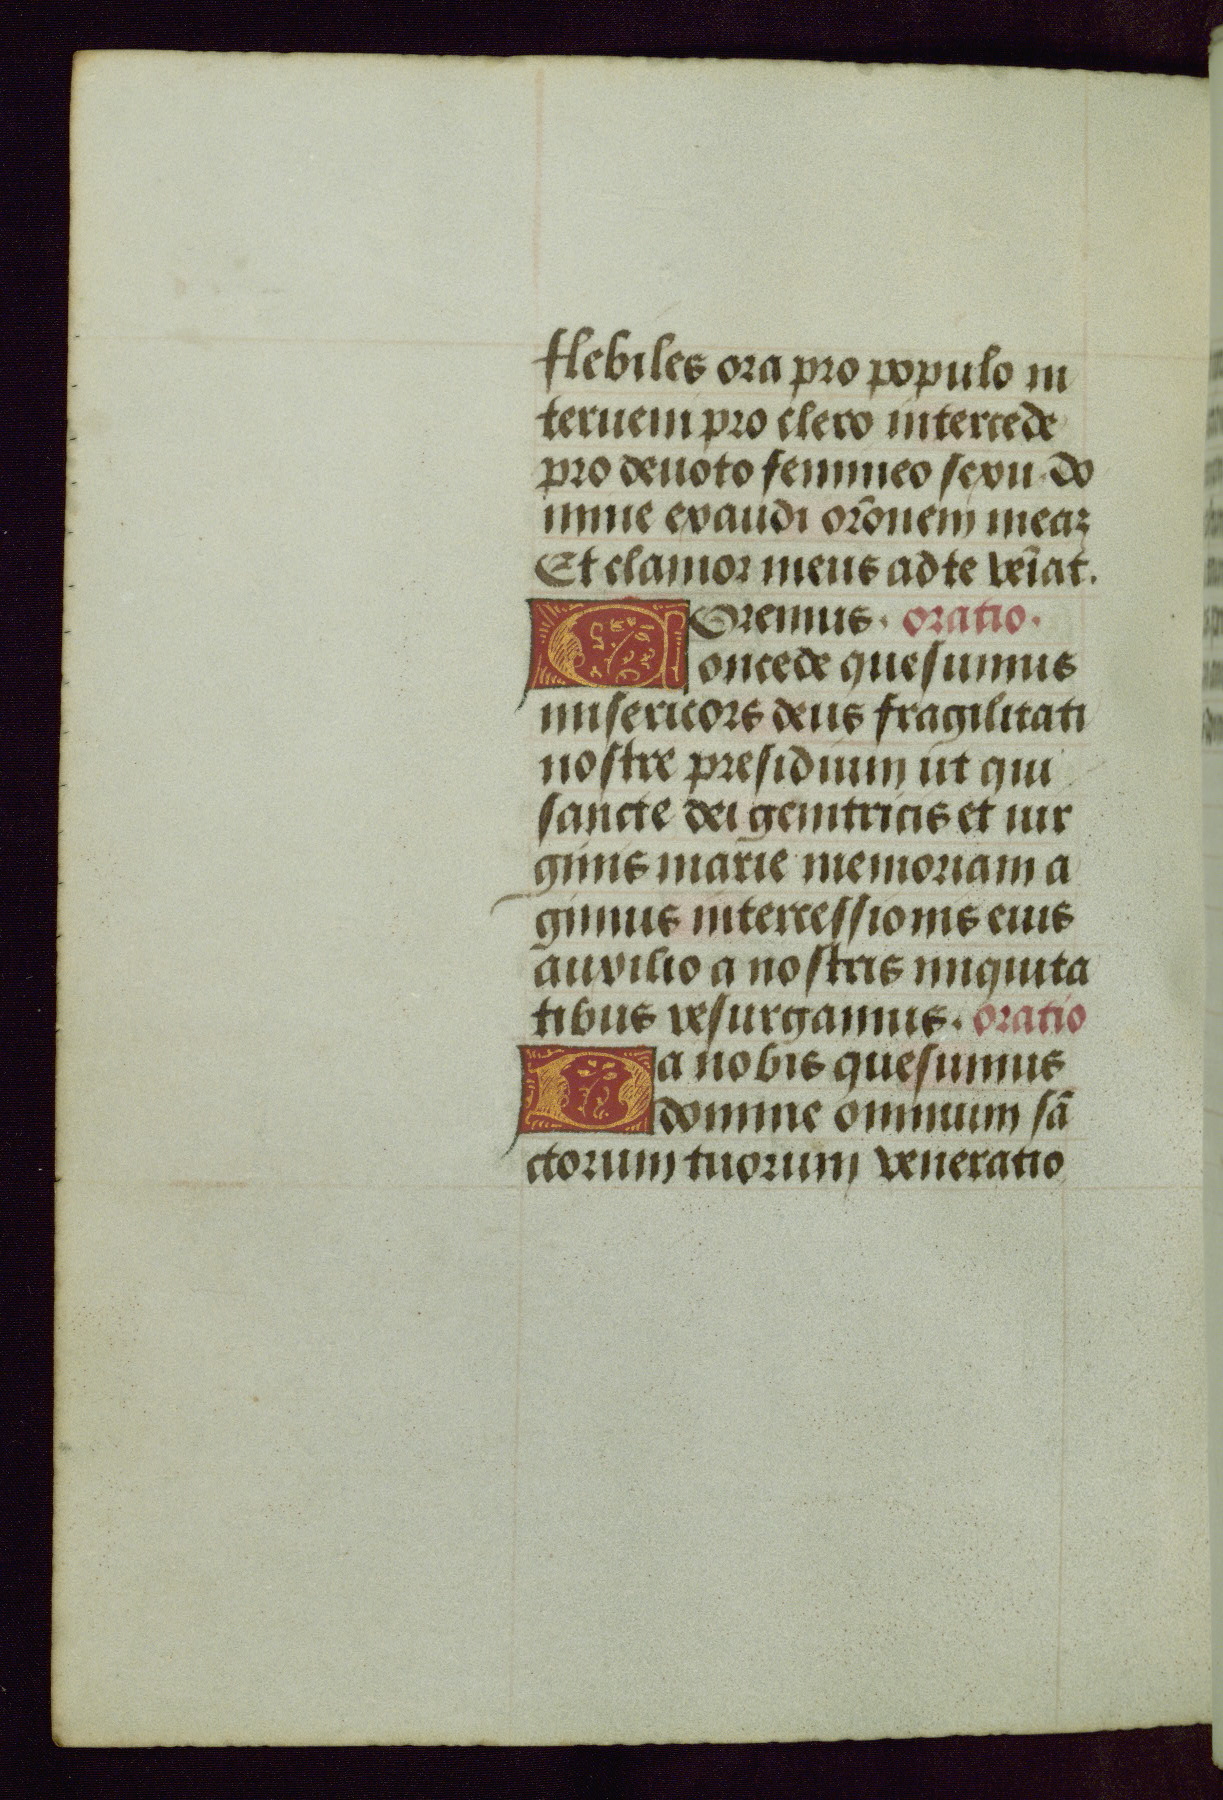 flebiles ora pro populo in
terueni pro clero intercede
pro deuoto femineo sexu. do
mine exaudi orōnem meaꝫ
Et clamor meus ad te ven̄iat.
Oremus. oratio.
Concede quesumus
misericors deus fragilitati
nostre presidium ut qui
sancte dei genitricis et uir
ginis marie memoriam a
gimus intercessionis eius
auxilio a nostris iniquita
tibus resurgamus. oratio
Da nobis quesumus
domine omnium sā
ctorum tuorum veneratio